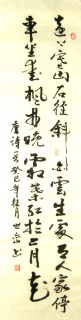 遠上寒山石径斜白雲生處有人家停
車坐愛楓林晚霜葉紅於二月花
唐詩一首癸巳年桂月